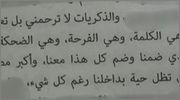 والذكريات لا ترحمني بل تع
في الكلمة، وهي الفرحة، وهي الضحكة
ذي ضمنا وضم كل هذا معنا، وأكبر مص
تظل حية بداخلنا رغم كل شيء،